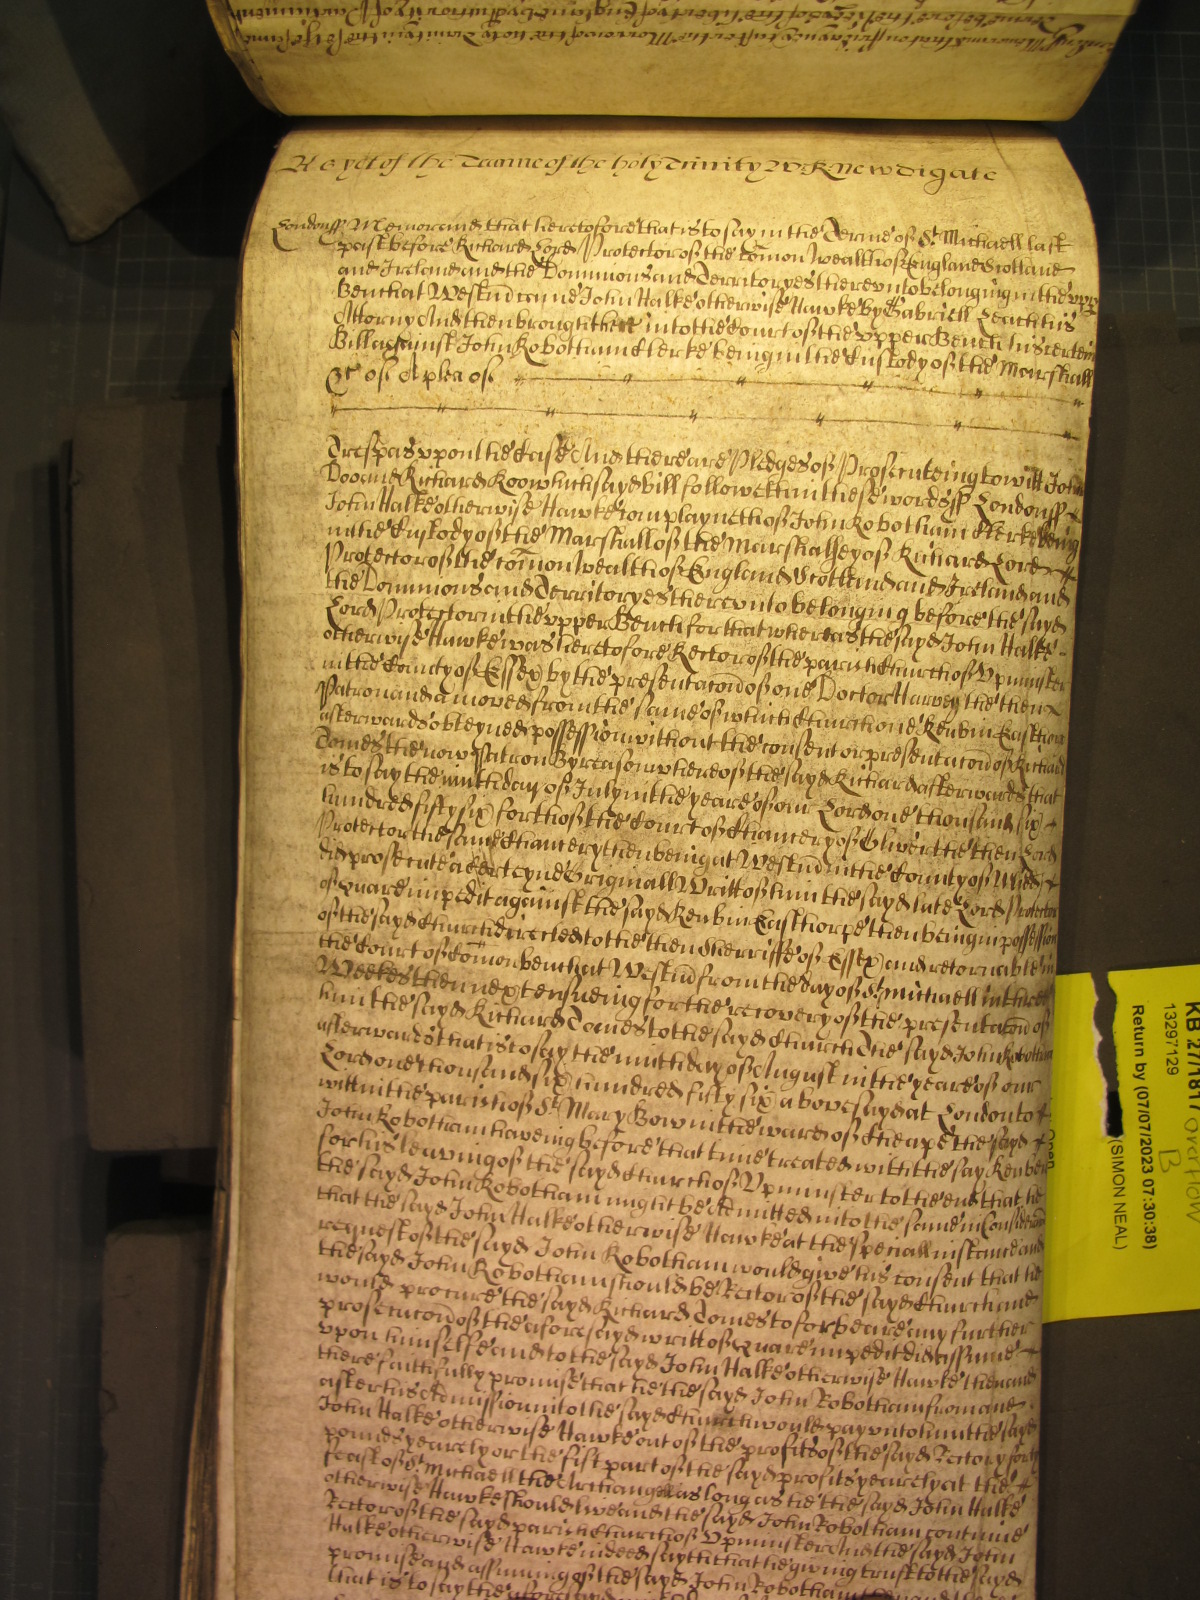 As yet of the Terme of the holy Trinity Newdigate
Londonss Memorand that heretofore that is to say in the Terme of St Michaell last
past before Richard Lord Protector of the Comonwealth of England Scotland
and Ireland and the Dominions and Territoryes thereunto belonging in the upp
Bench at Westm came John Halke otherwise Hawke by Gabriell Leach his
Attorny And then brought here into the Court of the upper Bench his certein
Bill against John Robotham Clerke being in the Custody of the Marshall
&c of A plea of
Trespas upon the Case And there are Pledges of Prosecuteing to witt John
Doo and Richard Roo which sayd bill followeth in these words ss Londonss
John Halke otherwise Hawke complayneth of John Robotham Clerke being
in the Custody of the Marshall of the Marshalsey of Richard Lord
Protector of the Comonwealth of England Scotland and Ireland and
the Dominions and Territoryes thereunto belonging before the sayd
Lord Protector in the upper Bench for that whereas the sayd John Halke
otherwise Hawke was heretofore Rector of the parish Church of Upminster
in the County of Essex by the presentacon of one Doctor Harvey the then
Patron and amoved from the same of which Church one Reubin Easthorp
afterwards obteyned possession without the consent or presentacon of Richard
Tomes the now Patron By reason whereof the sayd Richard afterwards that
is to say the ninth day of July in the yeare of our Lord one thousand six
hundred fifty six forth of the Court of Chancery of Oliver the then Lord
Protector the same Chancery then being at Westm in the County of Midd
did prosecute a certeyne Originall Writt of him the sayd late Lord Protector
of Quare impedit against the sayd Reubin Easthorpe then being in possession
of the sayd Church directed to the then Sherriffe of Essex and retornable in
the Court of Comon bench at Westm from the day of St Michaell in three
Weekes then next ensueing for the recovery of the presentacon of
him the sayd Richard Tomes to the sayd Church the sayd John Robotham
afterwards that is to say the ninth day of August in the yeare of our
Lord one thousand six hundred fifty six abovesayd at London to
witt in the parish of St Mary Bow in the ward of Cheape the sayd
John Robotham haveing before that time treated with the sayd Reuben
for his leaving of the sayd Church of Upminster to the end that he
the sayd John Robotham might be Admitted into the same in Consideracon
that the sayd John Halke otherwise Hawke at the speciall instance and
request of the sayd John Robotham would give his consent that he
the sayd John Robotham should be Rector of the sayd Church and
would procure the sayd Richard Tomes to forbeare any further
prosecucon of the aforesayd writt of Quare impedit did assume
upon himselfe and to the sayd John Halke otherwise Hawke then and
there faithfully promise that he the sayd John Robotham from and
after his Admission into the sayd Church would pay unto him the sayd
John Halke otherwise Hawke out of the profits of the sayd Rectory forty
pounds yearely or the fift part of the sayd profits yearely at the
feast of St Michaell the Archangell as long as he the sayd John Halke
otherwise Hawke should live and the sayd John Robotham continue
Rector of the sayd parish Church of Upminster And the sayd John
Halke otherwise Hawke indeed sayth that he giving trust to the sayd
promise and assuming of the sayd John Robotham
that is to say the aforesayd
KB 27/1817 overflow
B
13297129
Return by (07/07/2023 07:30:38)
(SIMON NEAL)